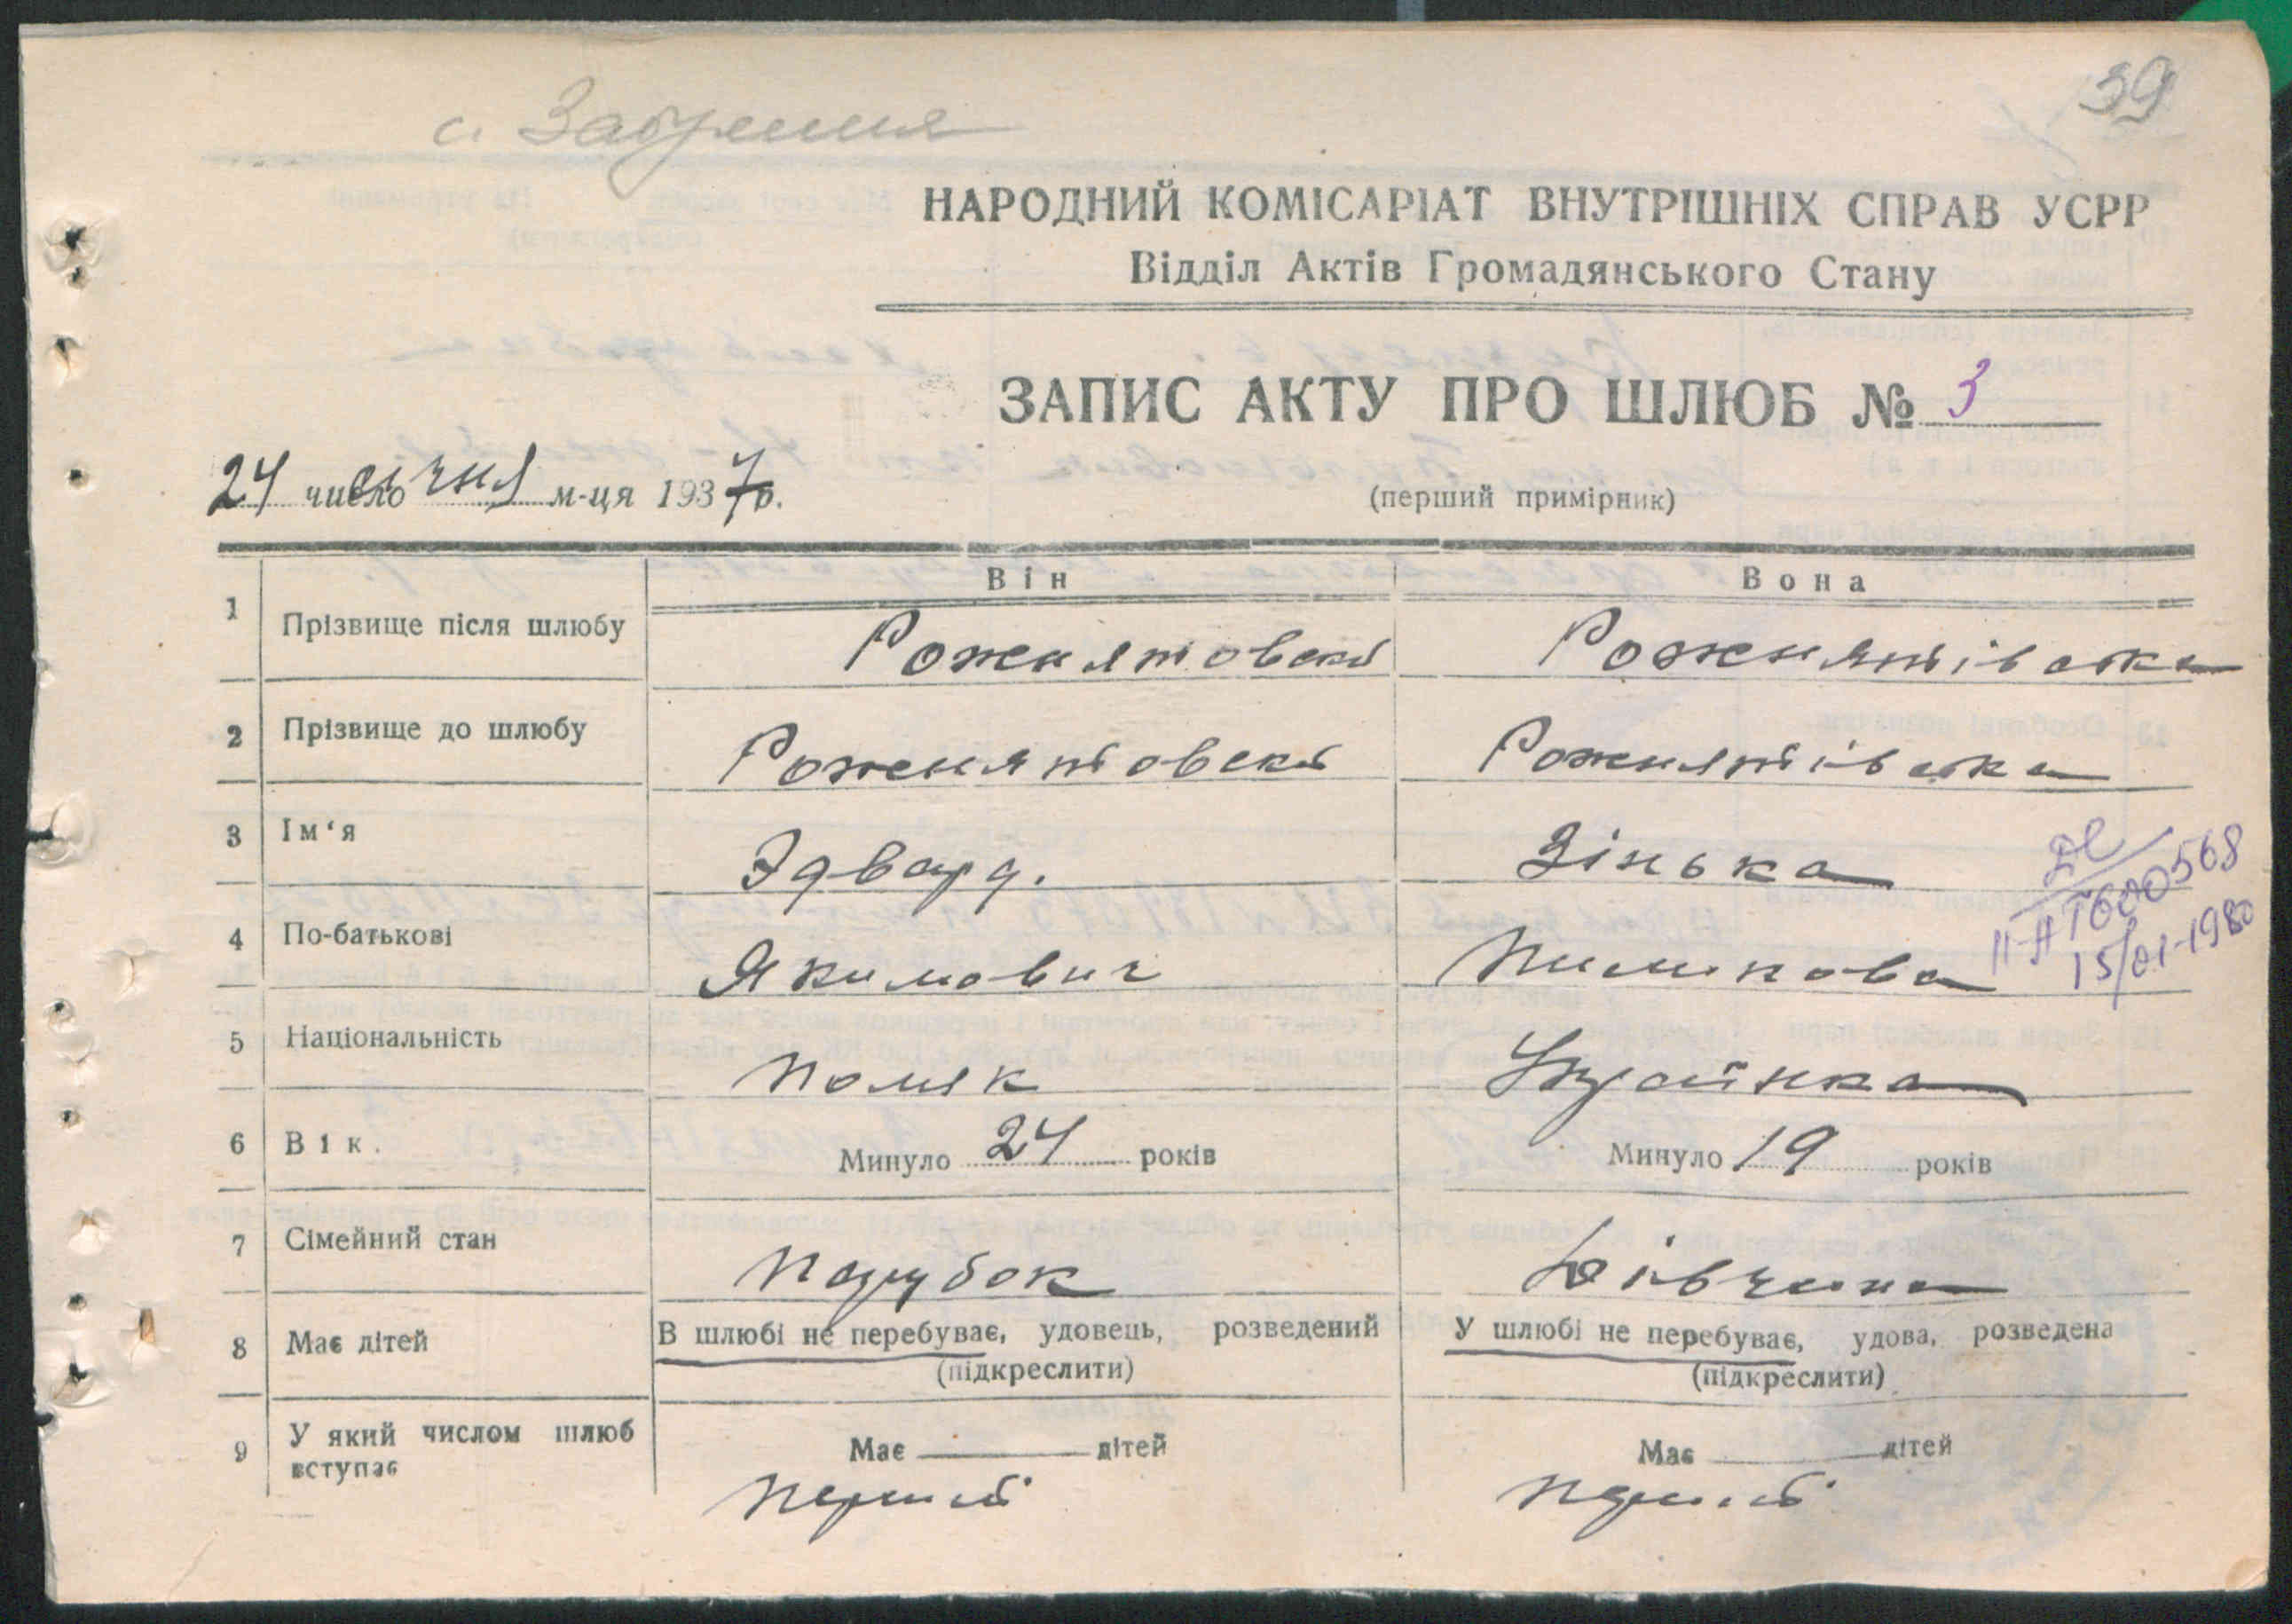 39
с. Забрення
НАРОДНИЙ КОМІСАРІАТ ВНУТРІШНІХ СПРАВ УСРР
Відділ Актів Громадянського Стану
ЗАПИС АКТУ ПРО ШЛЮБ № 3
24 число січня м-ця 1937р.
(перший примірник)
Він Вона
1 Прізвище після шлюбу Роженятовскі Роженятівска
2 Прізвище до шлюбу Роженятовскі Роженятівска
3 Ім‘я Эдвард. Зінька
4 По-батькові Якимович Пилипова
ІІ-АТ600568
15/01-1980
5 Національність Поляк Українка
6 Вік. Минуло 24 років Минуло 19 років
7 Сімейний стан Парубок Дівчина
8 Має дітей В шлюбі не перебуває, удовець, розведений У шлюбі не перебуває, удова, розведена
(підкреслити) (підкреслити)
9 У який числом шлюб вступає Має дітей Має дітей
Перший Перший